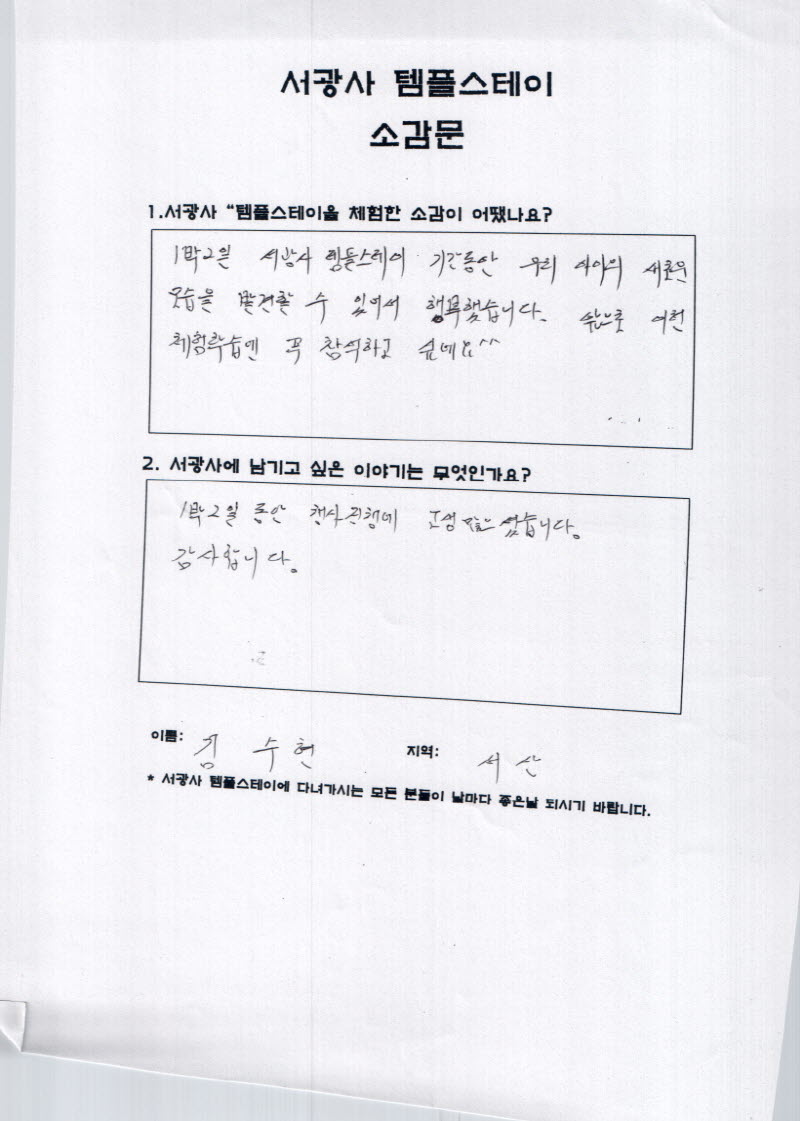 서광사 템플스테이
소감문
1.서광사 “템플스테이을 체험한 소감이 어땠나요?
1박2일 서광사 템플스테이 기간동안 우리 아이의 새로운
모습을 발견할 수 있어서 행복했습니다. 앞으로 이런
체험학습엔 꼭 참석하고 싶네요^^
2. 서광사에 남기고 싶은 이야기는 무엇인가요?
1박2일 동안 행사진행에 고생 많으셨습니다.
감사합니다.
이름: 김수현 지역: 서산
* 서광사 템플스테이에 다녀가시는 모든 분들이 날마다 좋은날 되시기 바랍니다.